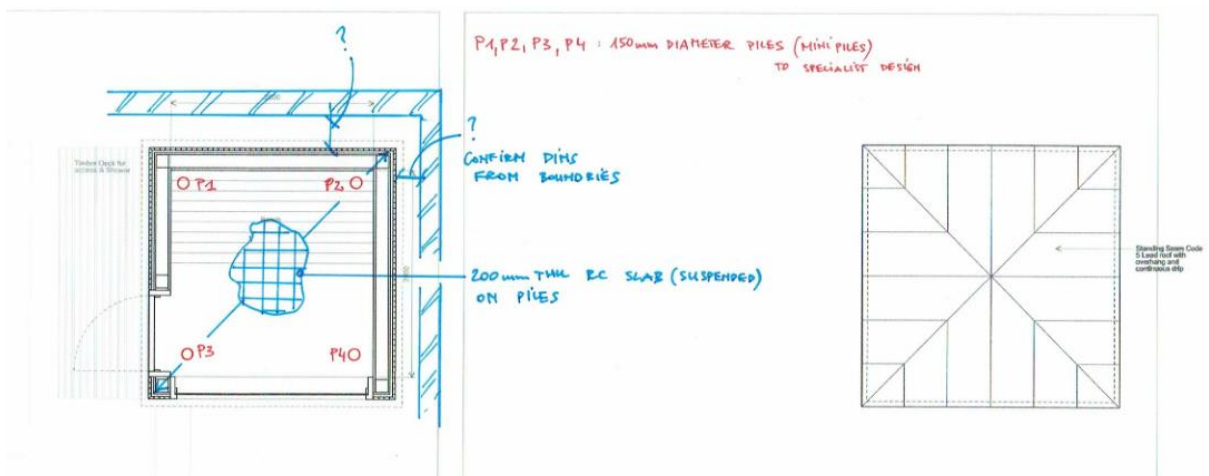 ?
P1, P2, P3, P4 : 150mm DIAMETER PILES (MINI PILES)
TO SPECIALIST DESIGN
?
CONFIRM DIMS
FROM BOUNDRIES
Timber Deck for
access & Shower
P1
P2
200mm THK RC SLAB (SUSPENDED)
ON PILES
P3
P4
Standing Seam Code
5 Lead roof with
overhang and
continuous drip